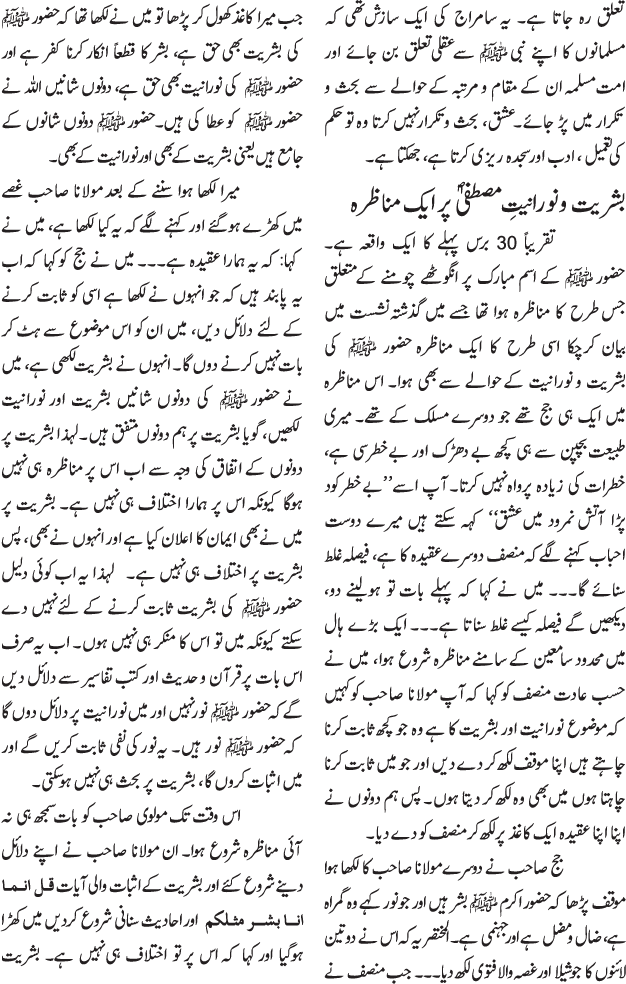 تعلق رہ جاتا ہے۔ یہ سامراج کی ایک سازش تھی کہ
مسلمانوں کا اپنے نبی ﷺ سے عقلی تعلق بن جائے اور
امت مسلمہ ان کے مقام و مرتبہ کے حوالے سے بحث و
تکرار میں پڑ جائے۔ عشق، بحث و تکرار نہیں کرتا وہ تو حکم
کی تعمیل، ادب اور سجدہ ریزی کرتا ہے، جھکتا ہے۔
بشریت و نورانیتِ مصطفیٰؐ پر ایک مناظرہ
تقریباً 30 برس پہلے کا ایک واقعہ ہے۔
حضور ﷺ کے اسم مبارک پر انگوٹھے چومنے کے متعلق
جس طرح کا مناظرہ ہوا تھا جسے میں گذشتہ نشست میں
بیان کرچکا اسی طرح کا ایک مناظرہ حضور ﷺ کی
بشریت و نورانیت کے حوالے سے بھی ہوا۔ اس مناظرہ
میں ایک ہی جج تھے جو دوسرے مسلک کے تھے۔ میری
طبیعت بچپن سے ہی کچھ بے دھڑک اور بے خطر سی ہے،
خطرات کی زیادہ پرواہ نہیں کرتا۔ آپ اسے ’’بے خطر کود
پڑا آتش نمرود میں عشق‘‘ کہہ سکتے ہیں میرے دوست
احباب کہنے لگے کہ منصف دوسرے عقیدہ کا ہے، فیصلہ غلط
سنائے گا۔۔۔ میں نے کہا کہ پہلے بات تو ہولینے دو،
دیکھیں گے فیصلہ کیسے غلط سناتا ہے۔۔۔ ایک بڑے ہال
میں محدود سامعین کے سامنے مناظرہ شروع ہوا، میں نے
حسب عادت منصف کو کہا کہ آپ مولانا صاحب کو کہیں
کہ موضوع نورانیت اور بشریت کا ہے وہ جو کچھ ثابت کرنا
چاہتے ہیں اپنا موقف لکھ کر دے دیں اور جو میں ثابت کرنا
چاہتا ہوں میں بھی وہ لکھ کر دیتا ہوں۔ پس ہم دونوں نے
اپنا اپنا عقیدہ ایک کاغذ پر لکھ کر منصف کو دے دیا۔
جج صاحب نے دوسرے مولانا صاحب کا لکھا ہوا
موقف پڑھا کہ حضور اکرم ﷺ بشر ہیں اور جو نور کہے وہ گمراہ
ہے، ضال و مضل ہے اور جہنمی ہے۔ المختصر یہ کہ اس نے دو تین
لائنوں کا جوشیلا اور غصہ والا فتویٰ لکھ دیا۔۔۔ جب منصف نے
جب میرا کاغذ کھول کر پڑھا تو میں نے لکھا تھا کہ حضور ﷺ
کی بشریت بھی حق ہے، بشر کا قطعاً انکار کرنا کفر ہے اور
حضور ﷺ کی نورانیت بھی حق ہے، دونوں شانیں اللہ نے
حضور ﷺ کو عطا کی ہیں۔ حضور ﷺ دونوں شانوں کے
جامع ہیں یعنی بشریت کے بھی اور نورانیت کے بھی۔
میرا لکھا ہوا سننے کے بعد مولانا صاحب غصے
میں کھڑے ہوگئے اور کہنے لگے کہ یہ کیا لکھا ہے، میں نے
کہا: کہ یہ ہمارا عقیدہ ہے۔۔۔ میں نے جج کو کہا کہ اب
یہ پابند ہیں کہ جو انہوں نے لکھا ہے اسی کو ثابت کرنے
کے لئے دلائل دیں، میں ان کو اس موضوع سے ہٹ کر
بات نہیں کرنے دوں گا۔ انہوں نے بشریت لکھی ہے، میں
نے حضور ﷺ کی دونوں شانیں بشریت اور نورانیت
لکھیں، گویا بشریت پر ہم دونوں متفق ہیں۔ لہذا بشریت پر
دونوں کے اتفاق کی وجہ سے اب اس پر مناظرہ ہی نہیں
ہوگا کیونکہ اس پر ہمارا اختلاف ہی نہیں ہے۔ بشریت پر
میں نے بھی ایمان کا اعلان کیا ہے اور انہوں نے بھی، پس
بشریت پر اختلاف ہی نہیں ہے۔ لہذا یہ اب کوئی دلیل
حضور ﷺ کی بشریت ثابت کرنے کے لئے نہیں دے
سکتے کیونکہ میں تو اس کا منکر ہی نہیں ہوں۔ اب یہ صرف
اس بات پر قرآن و حدیث اور کتب تفاسیر سے دلائل دیں
گے کہ حضور ﷺ نور نہیں اور میں نورانیت پر دلائل دوں گا
کہ حضور ﷺ نور ہیں۔ یہ نور کی نفی ثابت کریں گے اور
میں اثبات کروں گا، بشریت پر بحث ہی نہیں ہوسکتی۔
اس وقت تک مولوی صاحب کو بات سمجھ ہی نہ
آئی مناظرہ شروع ہوا۔ ان مولانا صاحب نے اپنے دلائل
دینے شروع کئے اور بشریت کے اثبات والی آیات قل انما
انا بشر مثلکم اور احادیث سنانی شروع کردیں میں کھڑا
ہوگیا اور کہا کہ اس پر تو اختلاف ہی نہیں ہے۔ بشریت